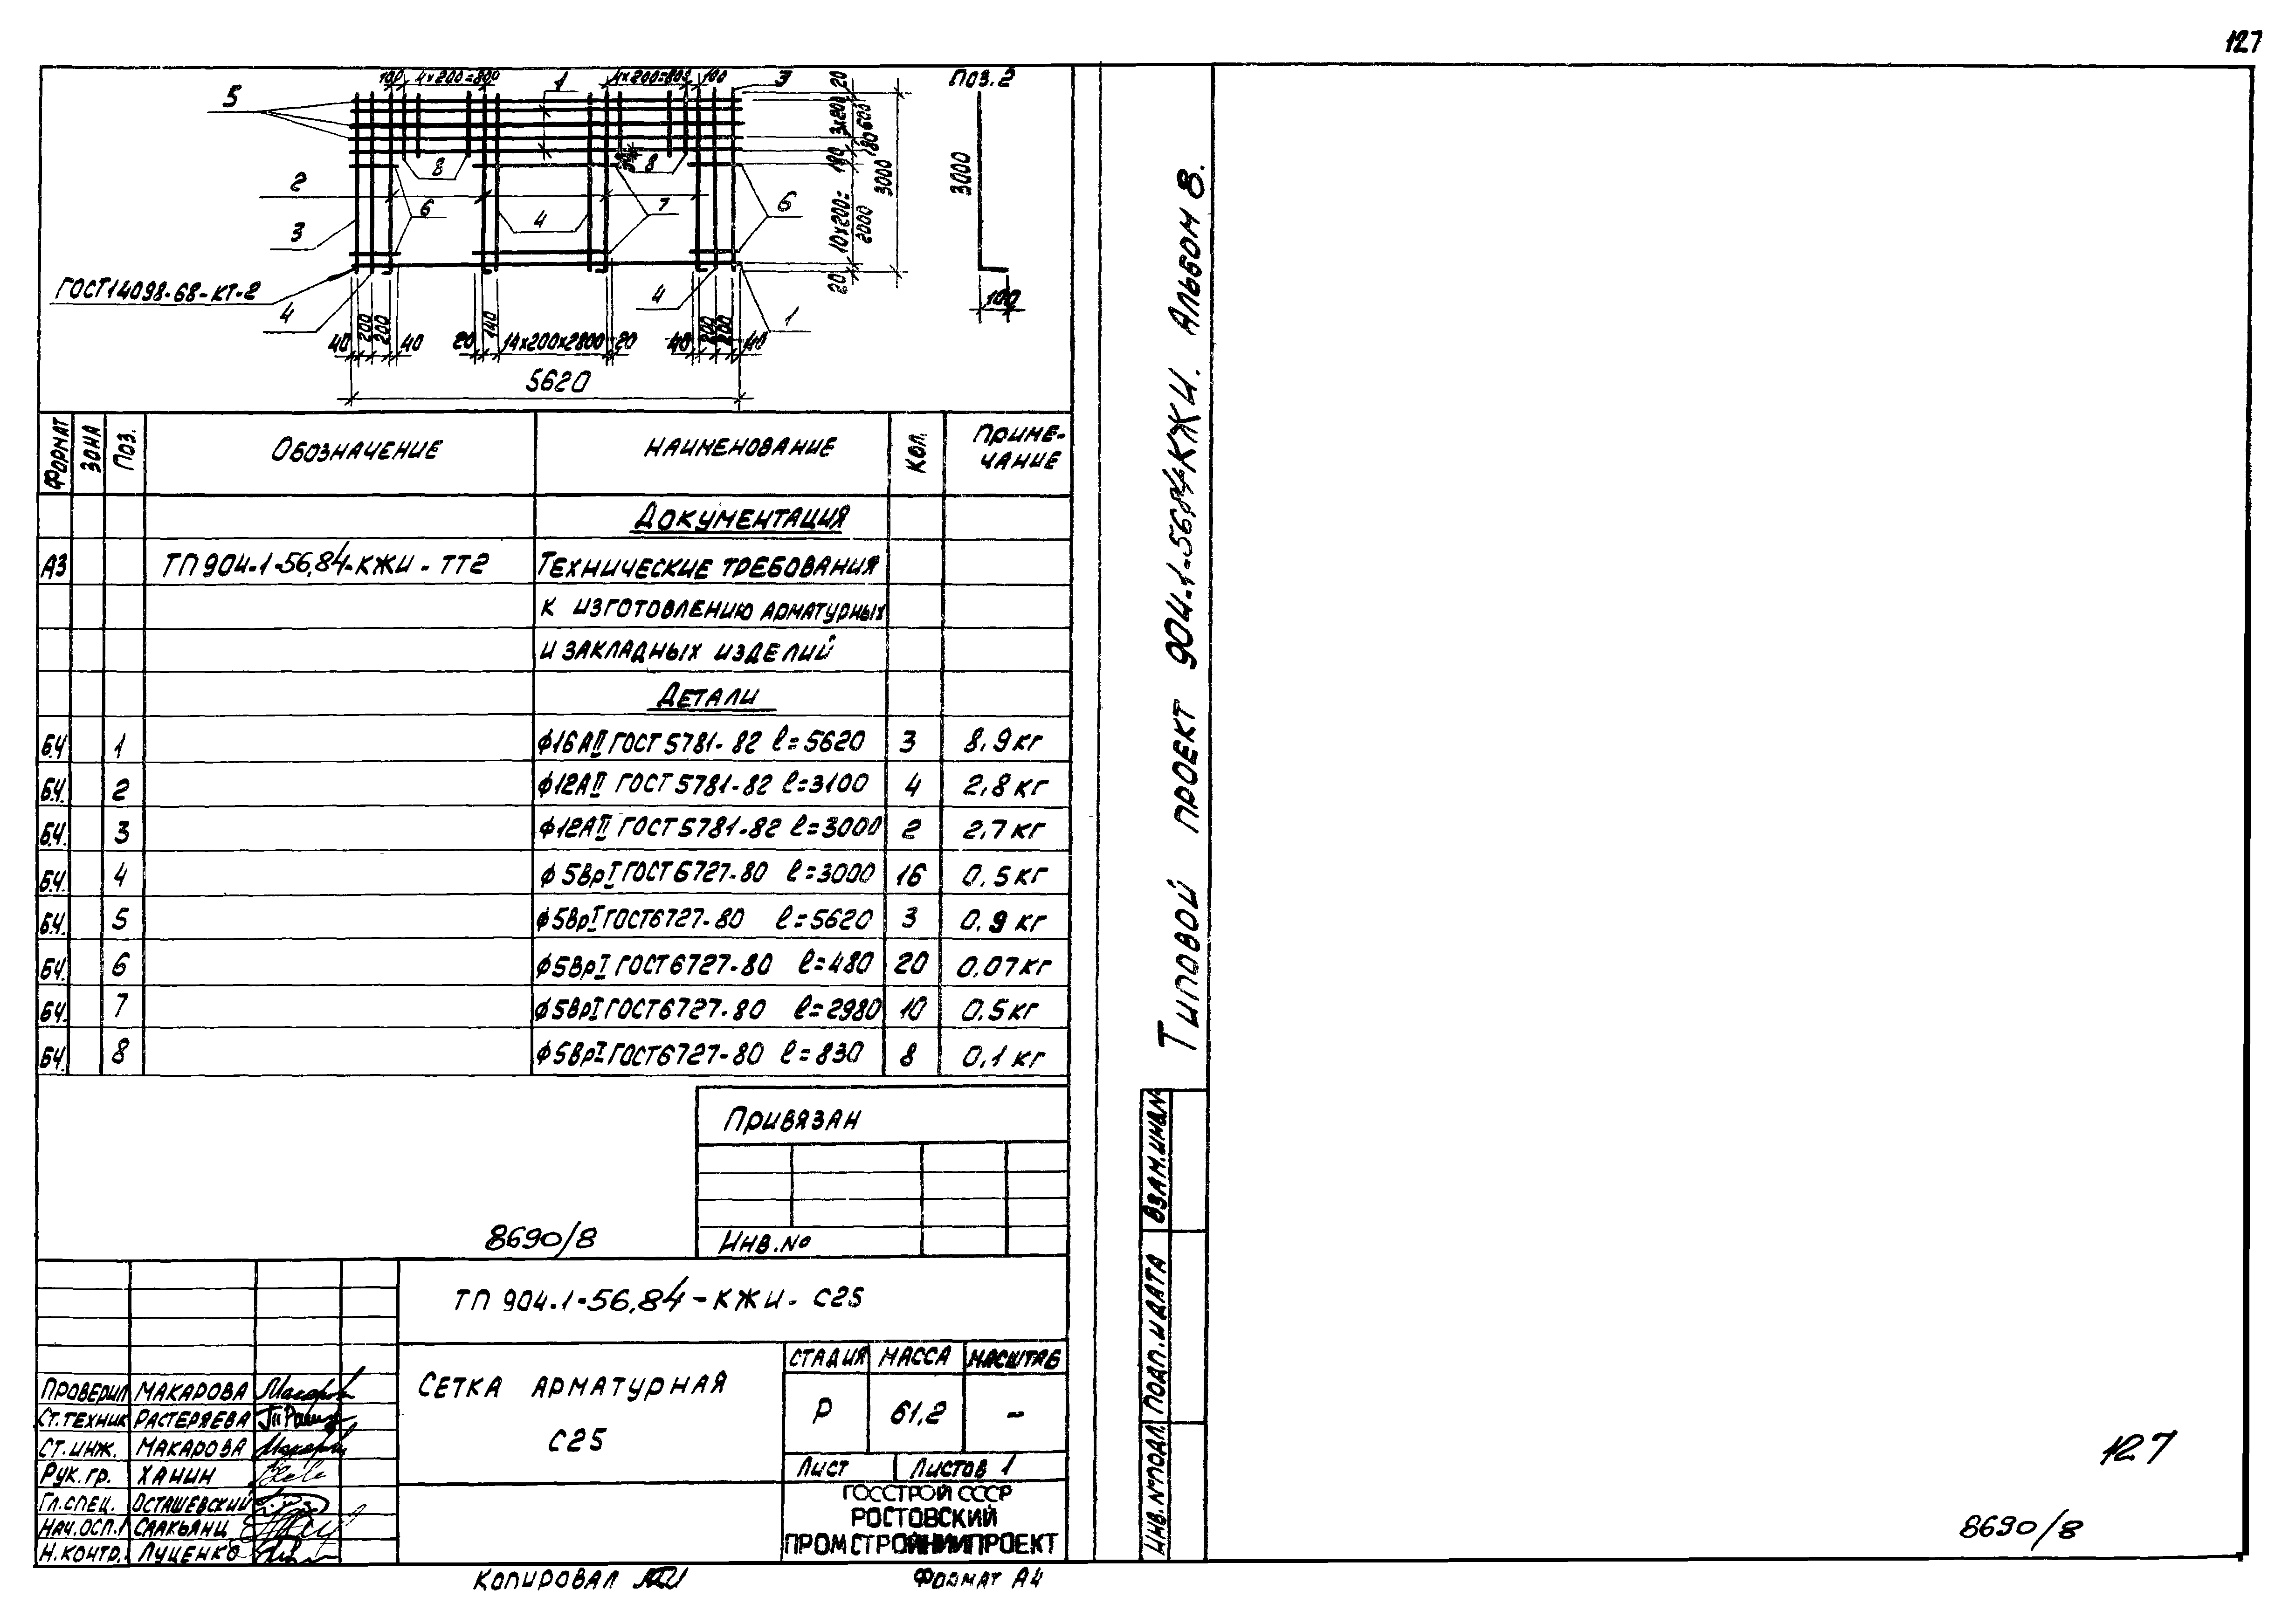 127
100 4×200=800 1 4×200=800 100 3
5
8 8
2
6 4 7 6
3
ГОСТ14098-68-КТ-2
4 4 1
20
3×200
600
180 180
3000
10×200=
2000
20
40 200 200 40 20 140 14×200×2800 20 40 200 200 40
5620
ПОЗ. 2
3000
100
ФОРМАТ ЗОНА ПОЗ. ОБОЗНАЧЕНИЕ НАИМЕНОВАНИЕ КОЛ. ПРИМЕ-
ЧАНИЕ
ДОКУМЕНТАЦИЯ
А3 ТП 904-1-56.84-КЖИ - ТТ2 ТЕХНИЧЕСКИЕ ТРЕБОВАНИЯ
К ИЗГОТОВЛЕНИЮ АРМАТУРНЫХ
И ЗАКЛАДНЫХ ИЗДЕЛИЙ
ДЕТАЛИ
Б.Ч. 1 ф16АII ГОСТ 5781-82 ℓ=5620 3 8,9 кг
Б.Ч. 2 ф12АII ГОСТ 5781-82 ℓ=3100 4 2,8 кг
Б.Ч. 3 ф12АII ГОСТ 5781-82 ℓ=3000 2 2,7 кг
Б.Ч. 4 ф5ВрI ГОСТ 6727-80 ℓ=3000 16 0,5 кг
Б.Ч. 5 ф5ВрI ГОСТ 6727-80 ℓ=5620 3 0,9 кг
Б.Ч. 6 ф5ВрI ГОСТ 6727-80 ℓ=480 20 0,07 кг
Б.Ч. 7 ф5ВрI ГОСТ 6727-80 ℓ=2980 10 0,5 кг
Б.Ч. 8 ф5ВрI ГОСТ 6727-80 ℓ=830 8 0,1 кг
ПРИВЯЗАН
ИНВ. №
8690/8
ТП 904-1-56.84-КЖИ- С25
СЕТКА АРМАТУРНАЯ
С25
СТАДИЯ МАССА МАСШТАБ
Р 61,2 –
ЛИСТ ЛИСТОВ 1
ГОССТРОЙ СССР
РОСТОВСКИЙ
ПРОМСТРОЙНИИПРОЕКТ
ПРОВЕРИЛ МАКАРОВА
СТ.ТЕХНИК РАСТЕРЯЕВА
СТ.ИНЖ. МАКАРОВА
РУК.ГР. ХАНИН
ГЛ.СПЕЦ. ОСТАШЕВСКИЙ
НАЧ.ОСП.1 СААКЬЯНЦ
Н.КОНТР. ЛУЦЕНКО
КОПИРОВАЛ
ФОРМАТ А4
ТИПОВОЙ ПРОЕКТ 904-1-56.84КЖИ. АЛЬБОМ 8.
ВЗАМ.ИНВ.№
ПОДП. И ДАТА
ИНВ. № ПОДЛ.
127
8690/8